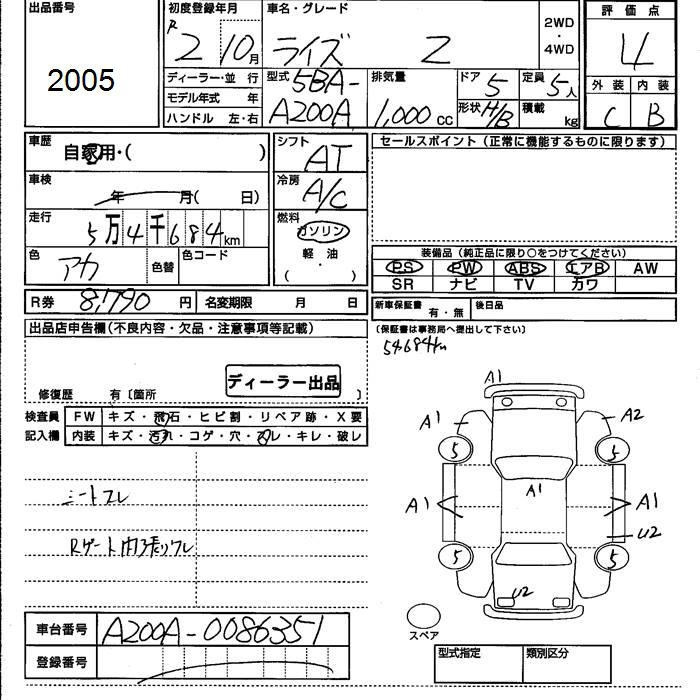 出品番号
2005
初度登録年月
R 2 10月
車名・グレード
ライズ Z
2WD
・
4WD
評価点
4
ディーラー・並 行
モデル年式 年
ハンドル 左・右
型式 5BA-
A200A
排気量
1,000 cc
ドア 5
形状 H/B
定員 5人
積載 kg
外装 内装
C B
車歴
自家用・( )
車検
年 月( 日)
走行
5万4千684km
色
アカ
色替
色コード
シフト
AT
冷房
A/C
燃料
ガソリン
軽・油
( )
セールスポイント(正常に機能するものに限ります)
装備品(純正品に限り○をつけてください)
PS PW ABS エアB AW
SR ナビ TV カワ
R券 8,790 円 名変期限 月 日
新車保証書
有・無
後日品
(保証書は事務局へ提出して下さい)
54684km
出品店申告欄(不良内容・欠品・注意事項等記載)
ディーラー出品
修復歴 有〔箇所 〕
検査員 FW キズ・飛石・ヒビ割・リペア跡・X要
記入欄 内装 キズ・汚れ・コゲ・穴・スレ・キレ・破レ
シートスレ
Rゲート内張りワレ
A1
A1 A2
5 5
A1
A1 A1
U2
5 5
U2
スペア
車台番号 A200A-0086351
登録番号
型式指定 類別区分